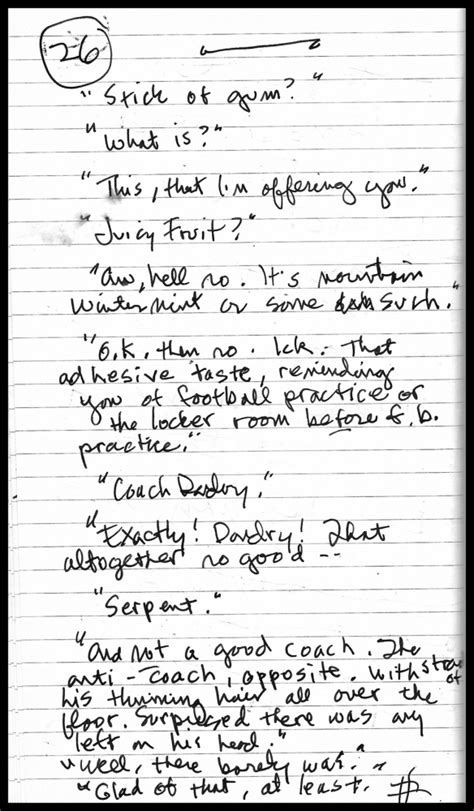 26
"Stick of gum?"
"What is?"
"This, that I'm offering you."
"Juicy Fruit?"
"Aw, hell no. It's mountain
wintermint or some such."
"O.k. then no. Ick. That
adhesive taste, reminding
you of football practice or
the locker room before f.b.
practice."
"Coach Dardry."
"Exactly! Dardry! That
altogether no good --
"Serpent."
"And not a good coach. The
anti-coach, opposite. With
his thinning hair all over the
floor. Surprised there was any
left on his head."
"Well, there barely was."
"Glad of that, at least. #